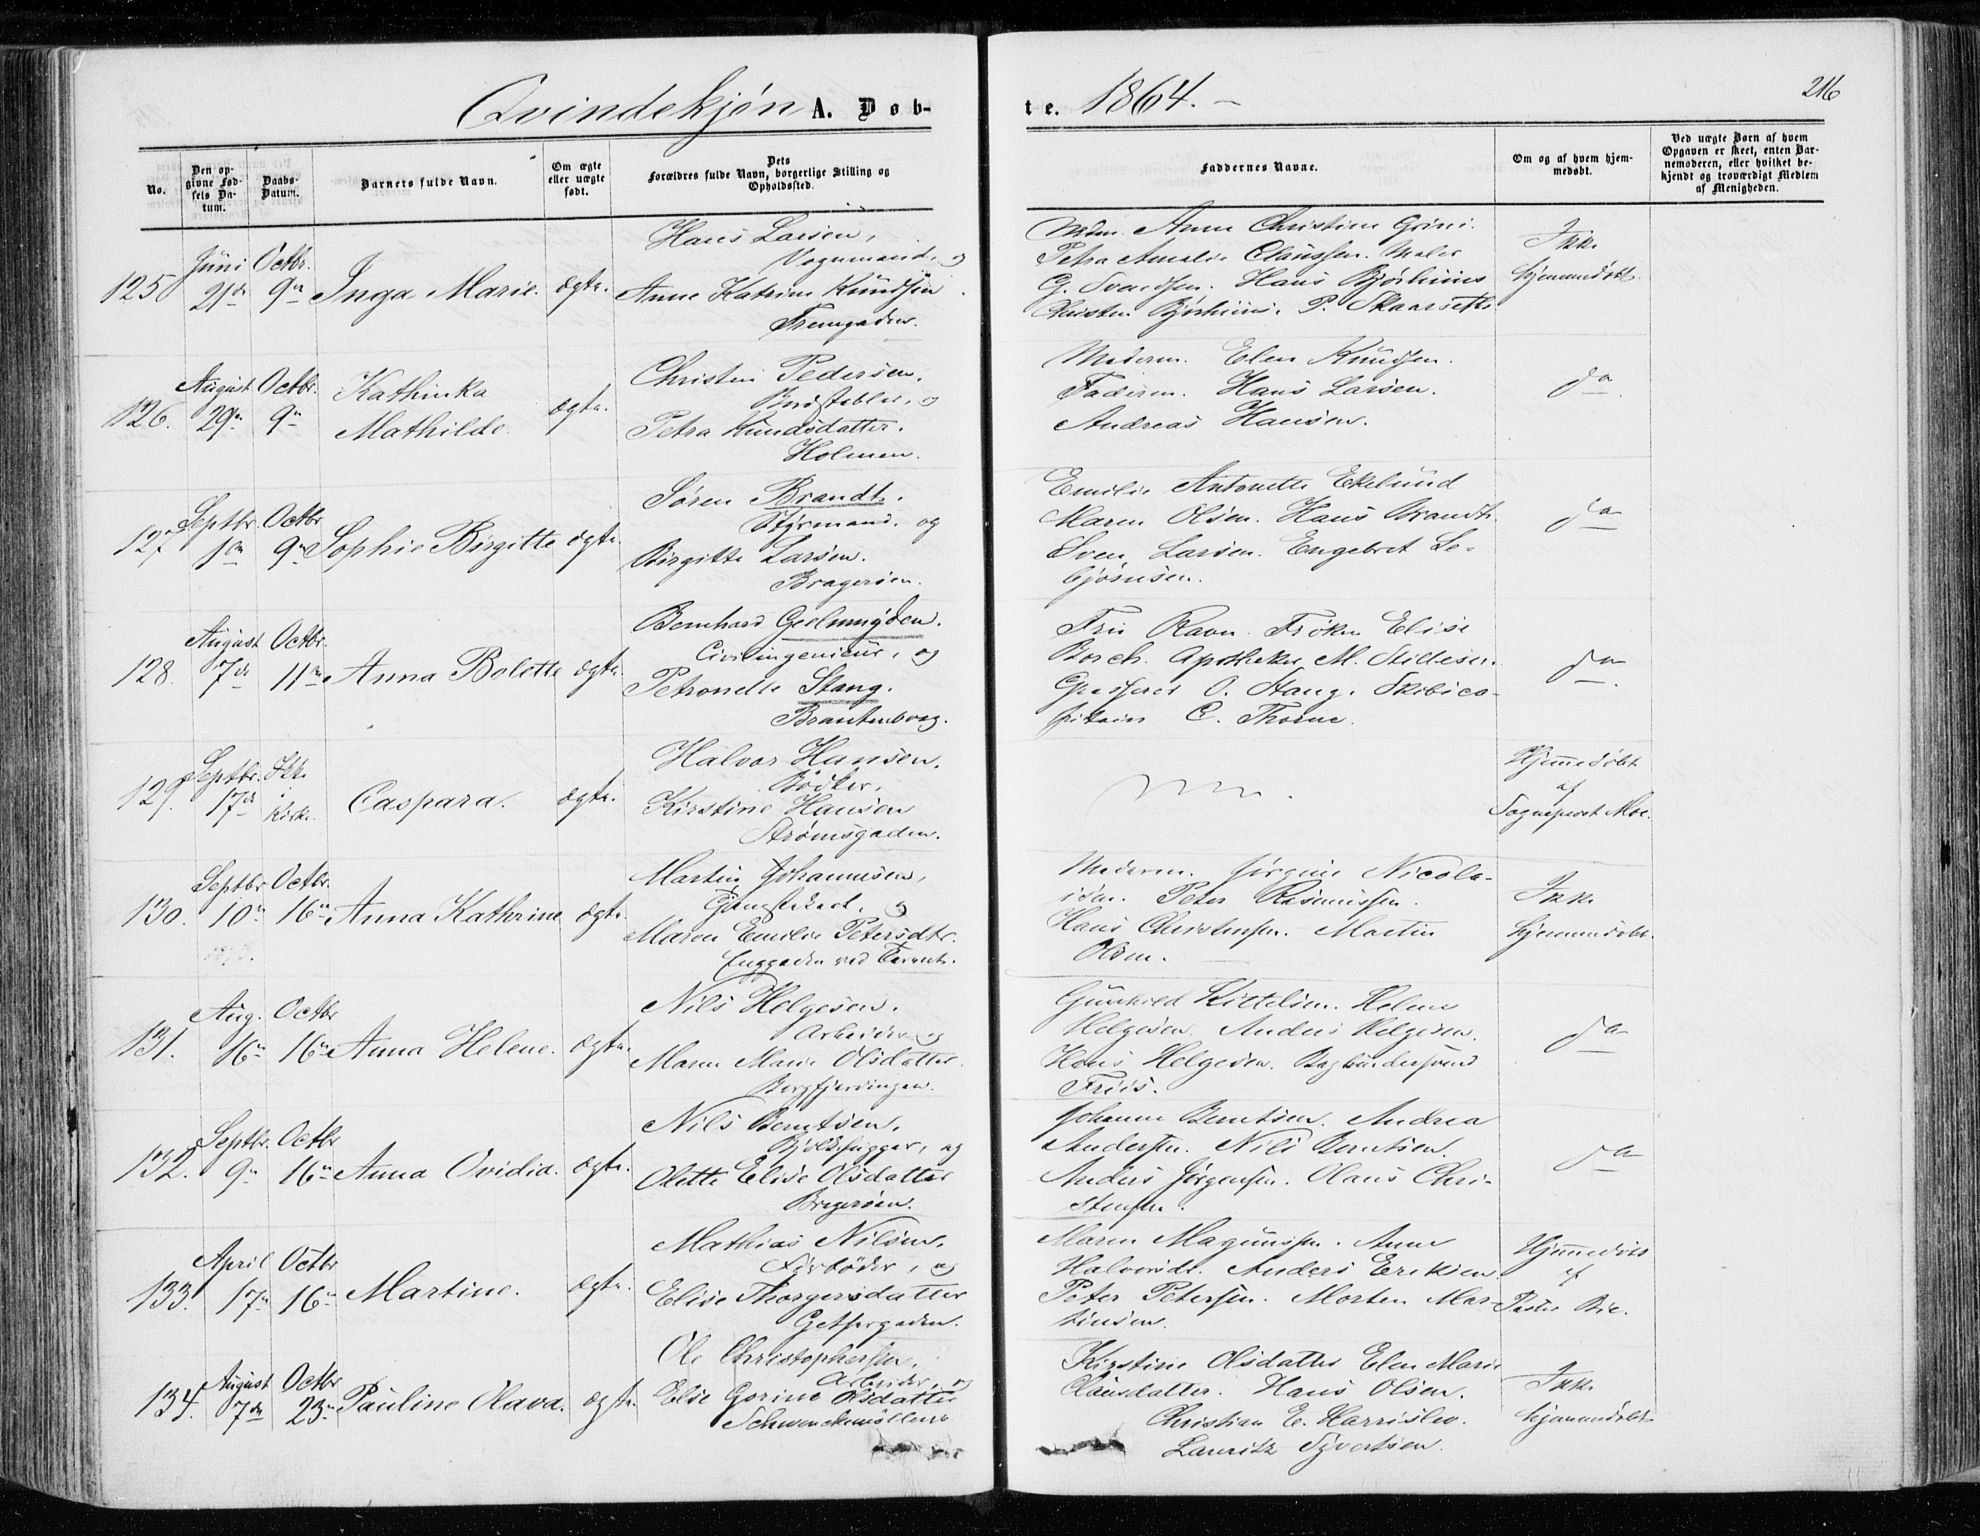 Qvindekjøn A. Døb-
te. 1864.
216
No.
Den op-
givne Fød-
sels Da-
tum.
Daabs-
Datum.
Barnets fulde Navn.
Om ægte
eller uægte
født.
Dets
Forældres fulde Navn, borgerlige Stilling og
Opholdssted.
Faddernes Navne.
Om og af hvem hjem-
medøbt.
Ved uægte Børn af hvem
Opgaven er skeet, enten Bar-
nemoderen, eller hvilket be-
kjendt og troværdigt Medlem
af Menigheden.
125. Juni 21de Octbr. 9de Inga Marie. ægte.
Hans Larsen,
Vognmand, og
Anne Katrine Knudsen
Anne Christine Grini.
Petra Amalie Claussen. Maler
G. Svendsen. Hans Bjørhuus
Bjørhuus. P. Skaarseth.
Ikke
hjemmedøbt.
126. August 29de Octbr. 9de Kathinka
Mathilde. ægte.
Christen Pedersen,
Petra Knudsdatter.
Holmen.
Moderen. Elen Knudsen.
Faderen. Hans Larsen.
Andreas Hansen.
do
127 Septbr. 1ste Octbr. 9de Sophie Birgitte ægte.
Søren Brandt.
Styrmand. og
Birgitte Larsen.
Bragerøen.
Emilie Antonette Ekelund
Maren Olsen. Hans Brandt.
Sven Larsen. Engebret Te-
bjørnsen.
do
128. August 7de Octbr. 11te Anna Bolette ægte.
Bernhard Geelmuyden.
Civilingenieur, og
Petronelle Stang.
Brantenborg.
Fru Ravn. Frøken Elise
Borch. Apotheker M.
O. Haug. Skibsca-
pitain C. Thorne.
do
129. Septbr. 17de Ikke
i
Kirke. Caspara. ægte.
Halvor Hansen.
Bødker.
Kirstine Hansen
Strømsgaden.
Hjemmedøbt
af
Sognepræst Moe.
130. Septbr. 10de Octbr. 16de Anna Kathrine ægte.
Martin Johannesen,
og
Maren Emilie Petersdtr.
Enggaden ved
Moderen. Jørgine Nicola-
isen. Peter Rasmussen.
Hans Christensen. Martin
Olsen.
Ikke
hjemmedøbt.
131. Aug. 16de Octbr. 16de Anna Helene. ægte.
Nils Helgesen.
Arbeider og
Maren Marie Olsdatter.
Bergfjerdingen.
Gunhild Kittelsen. Helene
Helgesen. Anders Helgesen.
Hans Helgesen. Bogbindersvend
Friis.
do
132. Septbr. 9de Octbr. 16de Anna Ovidia. ægte.
Nils Berntsen.
Bjelkehugger, og
Olette Elise Olsdatter
Bragerøen.
Johanne Berntsen. Andrea
Andersen. Nils Berntsen.
Anders Jørgensen. Olaus Chri-
stensen.
do
133. April 17de Octbr 16de Martine. ægte.
Mathias Nilsen,
Førbøder, og
Elise Thorgersdatter
Gethergaden.
Maren Magnussen. Anne
Halvorsdt. Anders Eriksen
Peter Petersen. Morten Mar-
tinsen.
Hjemmedøbt
af
Pastor Bie.
134. August 7de Octbr 23de Pauline Olava. ægte.
Ole Christophersen,
Arbeider, og
Else Gorine Olsdatter
Schwenckemøllen
Kirstine Olsdatter Elen Marie
Clausdatter. Hans Olsen.
Christian E. Harrislev.
Lauritz Syvertsen.
Ikke
hjemmedøbt